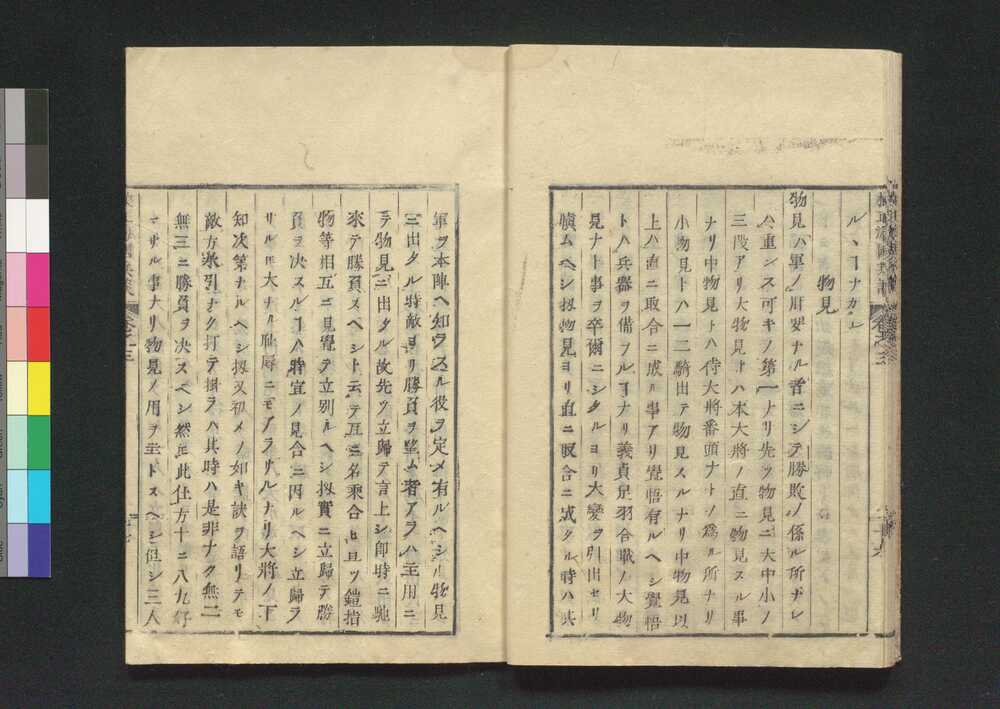 ルヽヿナカレ
物見
物見ハ軍ノ肝要ナル者ニシテ勝敗ノ係ル所ナレ
ハ重ンス可キノ第一ナリ先ツ物見ニ大中小ノ
三段アリ大物見トハ本大將ノ直ニ物見スル事
ナリ中物見トハ侍大將番頭ナトノ爲ル所ナリ
小物見トハ一二騎出テ物見スルナリ中物見以
上ハ直ニ取合ニ成ル事アリ覺悟有ルヘシ覺悟
トハ兵器ヲ備フルヿナリ義貞足羽合戰ノ大物
見ナト事ヲ卒爾ニシタルヨリ大變ヲ引出セリ
愼ムヘシ扨物見ヨリ直ニ取合ニ成タル時ハ其
軍ヲ本陣ヘ知ラスル役ヲ定メ有ルヘシ物見
ニ出タル時敵ヨリ勝負ヲ望ム者アラハ主用ニ
テ物見ニ出タル故先ツ立歸テ言上シ即時ニ馳
來テ勝負スヘシト云テ互ニ名乘合ヒ且ツ鎧指
物等相互ニ見覺テ立別ルヘシ扨實ニ立歸テ勝
負ヲ决スルヿハ時宜ノ見合ニ因ルヘシ立歸ラ
サルモ大ナル耻辱ニモアラサルナリ大將ノ下
知次第ナルヘシ扨又初メノ如キ訣ヲ語リテモ
敵方承引ナク打テ掛ラハ其時ハ是非ナク無二
無三ニ勝負ヲ决スヘシ然𪜈此仕方十ニ八九好
マサル事ナリ物見ノ用ヲ主トスヘシ但シ三人